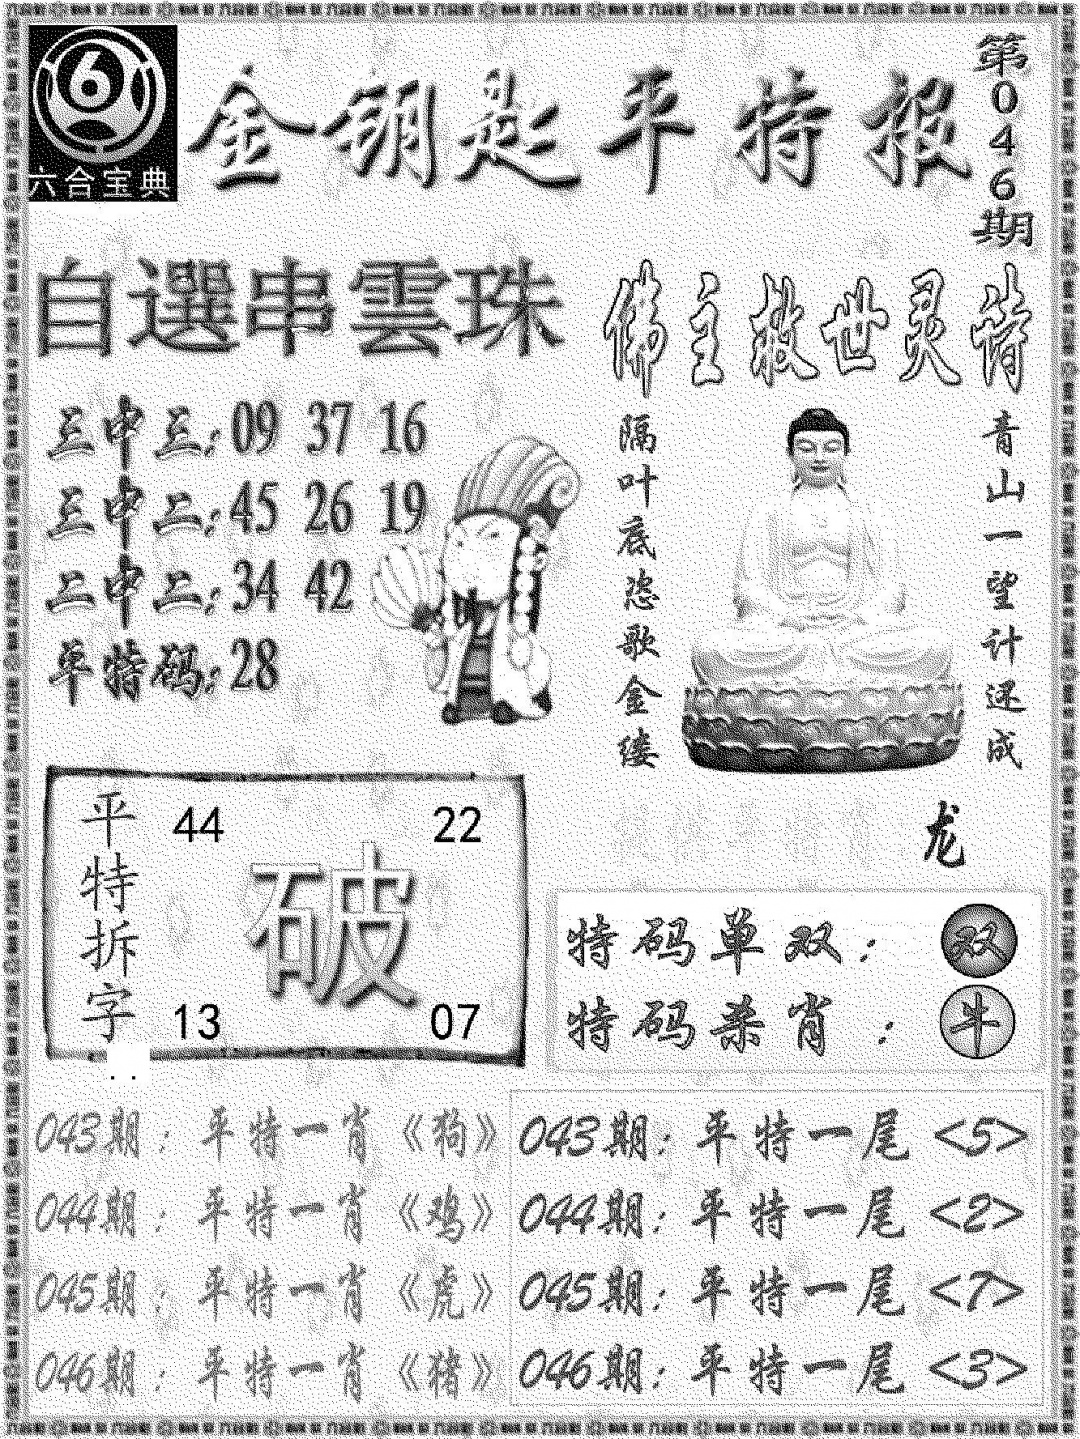 六合宝典
金钥匙平特报
第046期
自選串雲珠
三中三:09 37 16
三中二:45 26 19
二中二:34 42
单特码:28
佛主救世灵诗
青山一望计还成
隔叶底恣歌金缕
龙
平特拆字
44 22
破
13 07
特码单双: 双
特码杀肖: 牛
043期: 平特一肖《狗》
044期: 平特一肖《鸡》
045期: 平特一肖《虎》
046期: 平特一肖《猪》
043期: 平特一尾<5>
044期: 平特一尾<2>
045期: 平特一尾<7>
046期: 平特一尾<3>